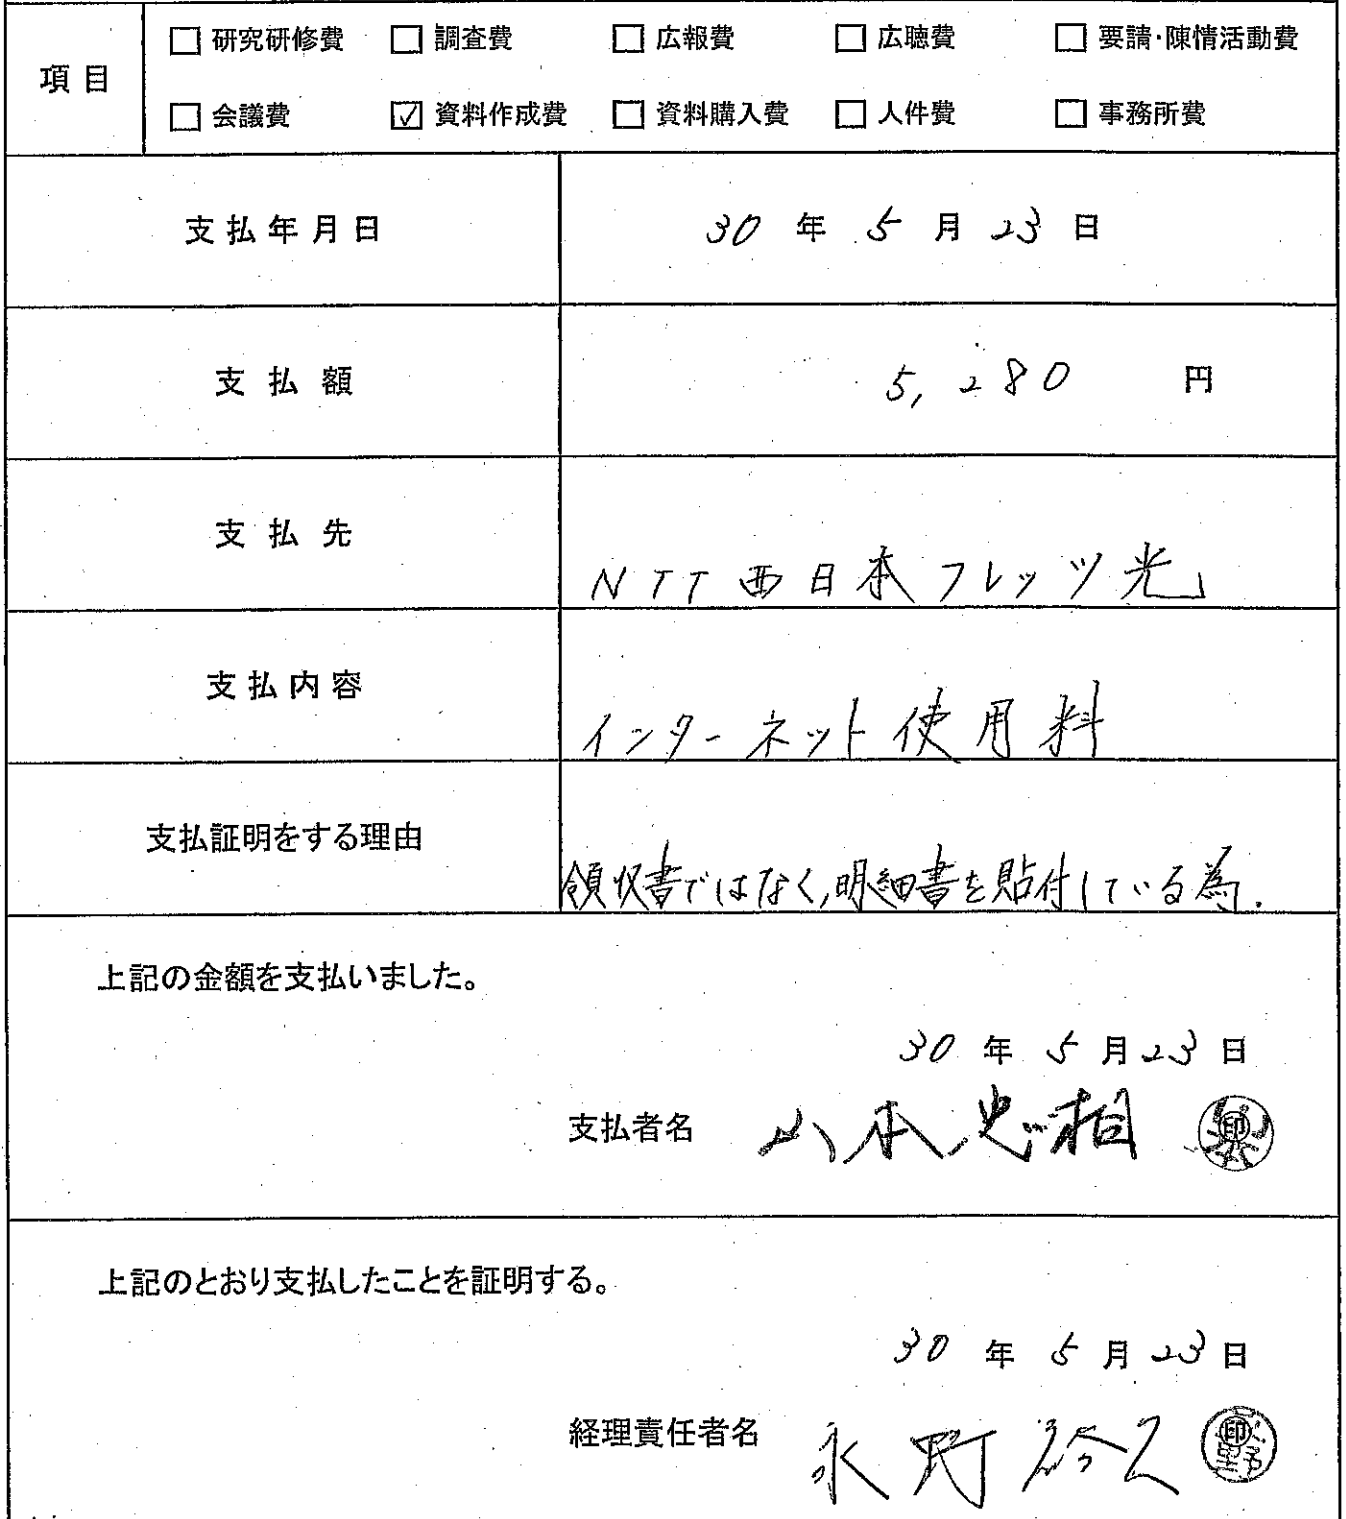 項目
□ 研究研修費 □ 調査費 □ 広報費 □ 広聴費 □ 要請・陳情活動費
□ 会議費 ☑ 資料作成費 □ 資料購入費 □ 人件費 □ 事務所費
支払年月日 30 年 5 月 23 日
支払額 5,280 円
支払先 NTT西日本フレッツ光
支払内容 インターネット使用料
支払証明をする理由 領収書ではなく,明細書を貼付している為.
上記の金額を支払いました。
30 年 5 月 23 日
支払者名 山本忠相 印
上記のとおり支払したことを証明する。
30 年 5 月 23 日
経理責任者名 永野 印